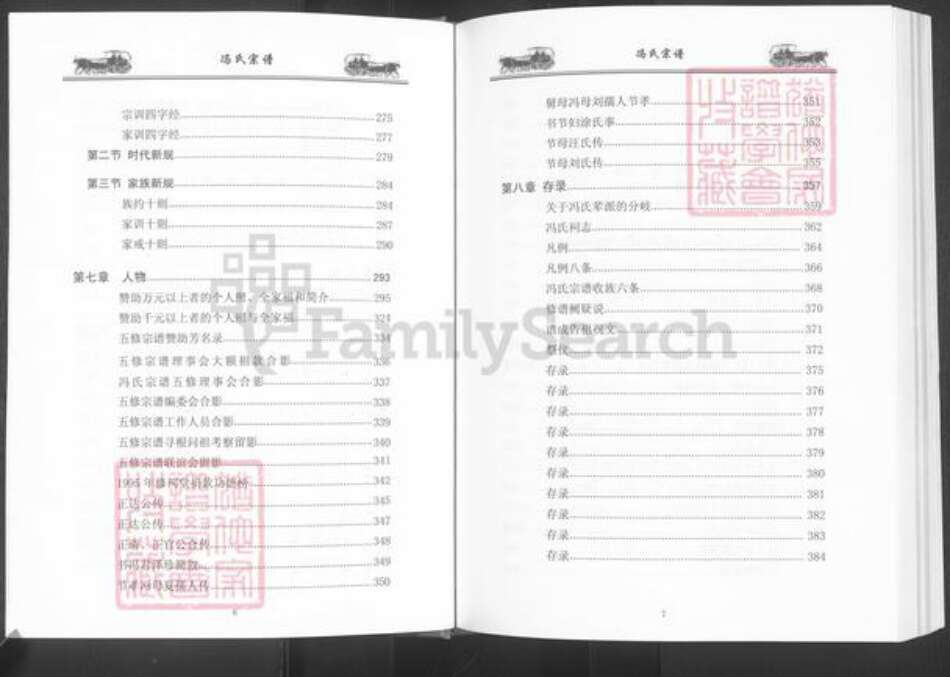 冯氏宗谱
宗训四字经 275
家训四字经 277
第二节 时代新规 279
第三节 家族新规 284
族约十则 284
家训十则 287
家戒十则 290
第七章 人物 293
赞助万元以上者的个人照、全家福和简介 295
赞助千元以上者的个人照与全家福 324
五修宗谱赞助芳名录 334
五修宗谱理事会大额捐款合影 336
冯氏宗谱五修理事会合影 337
五修宗谱编委会合影 338
五修宗谱工作人员合影 339
五修宗谱寻根问祖考察留影 340
五修宗谱联谊会留影 341
1995年修祠堂捐款功德榜 342
正达公传 345
正达公传 347
正 、正官公合传 348
349
节孝冯母夏孺人传 350
6
冯氏宗谱
冯母刘孺人节孝 351
书节妇涂氏事 352
节母汪氏传 353
节母刘氏传 355
第八章 存录 357
关于冯氏辈派的分歧 359
冯氏同志 362
凡例 364
凡例八条 366
冯氏宗谱收族六条 368
修谱阙疑说 370
谱成告祖祝文 371
祭仪 372
存录 375
存录 376
存录 377
存录 378
存录 379
存录 380
存录 381
存录 382
存录 383
存录 384
7
FamilySearch